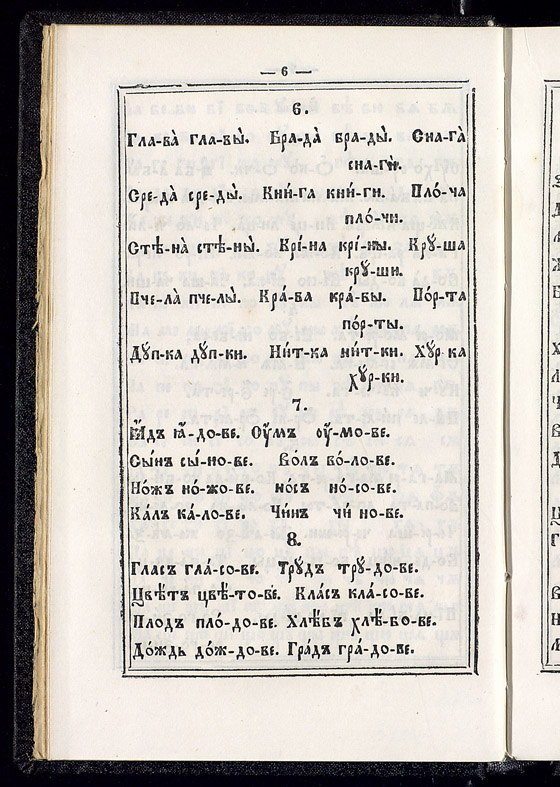 — 6 —
6.
Гла-ва̀ гла-вы̀. Бра-да̀ бра-ды̀. Сна-га̀
сна-гѝ.
Сре-да̀ сре-ды̀. Кни́-га кни́-ги. Пло́-ча
пло́-чи.
Стѣ-на̀ стѣ-ны̀. Крі́-на крі́-ны. Крꙋ́-ша
крꙋ́-ши.
Пче-ла̀ пче-лы̀. Кра́-ва кра́-вы. По́р-та
по́р-ты.
Дꙋ́п-ка дꙋ́п-ки. Ни́т-ка ни́т-ки. Хꙋ́р-ка
хꙋ́р-ки.
7.
Ꙗ҆́дъ ꙗ҆́-до-ве. Оу҆́мъ оу҆́-мо-ве.
Сы́нъ сы́-но-ве. Во́лъ во́-ло-ве.
Но́жъ но́-жо-ве. Но́съ но́-со-ве.
Ка́лъ ка́-ло-ве. Чи́нъ чи́ но-ве.
8.
Гласъ гла́-со-ве. Трꙋ́дъ трꙋ́-до-ве.
Цвѣ́тъ цвѣ́-то-ве. Кла́съ кла́-со-ве.
Плодъ пло́-до-ве. Хлѣ́бъ хлѣ́-бо-ве.
До́ждь до́ж-до-ве. Гра́дъ гра́-до-ве.